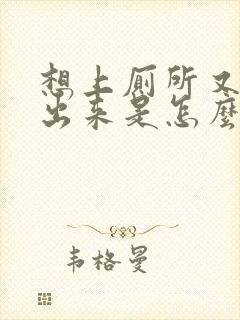 想上厕所又
出来是怎麼
韦格曼